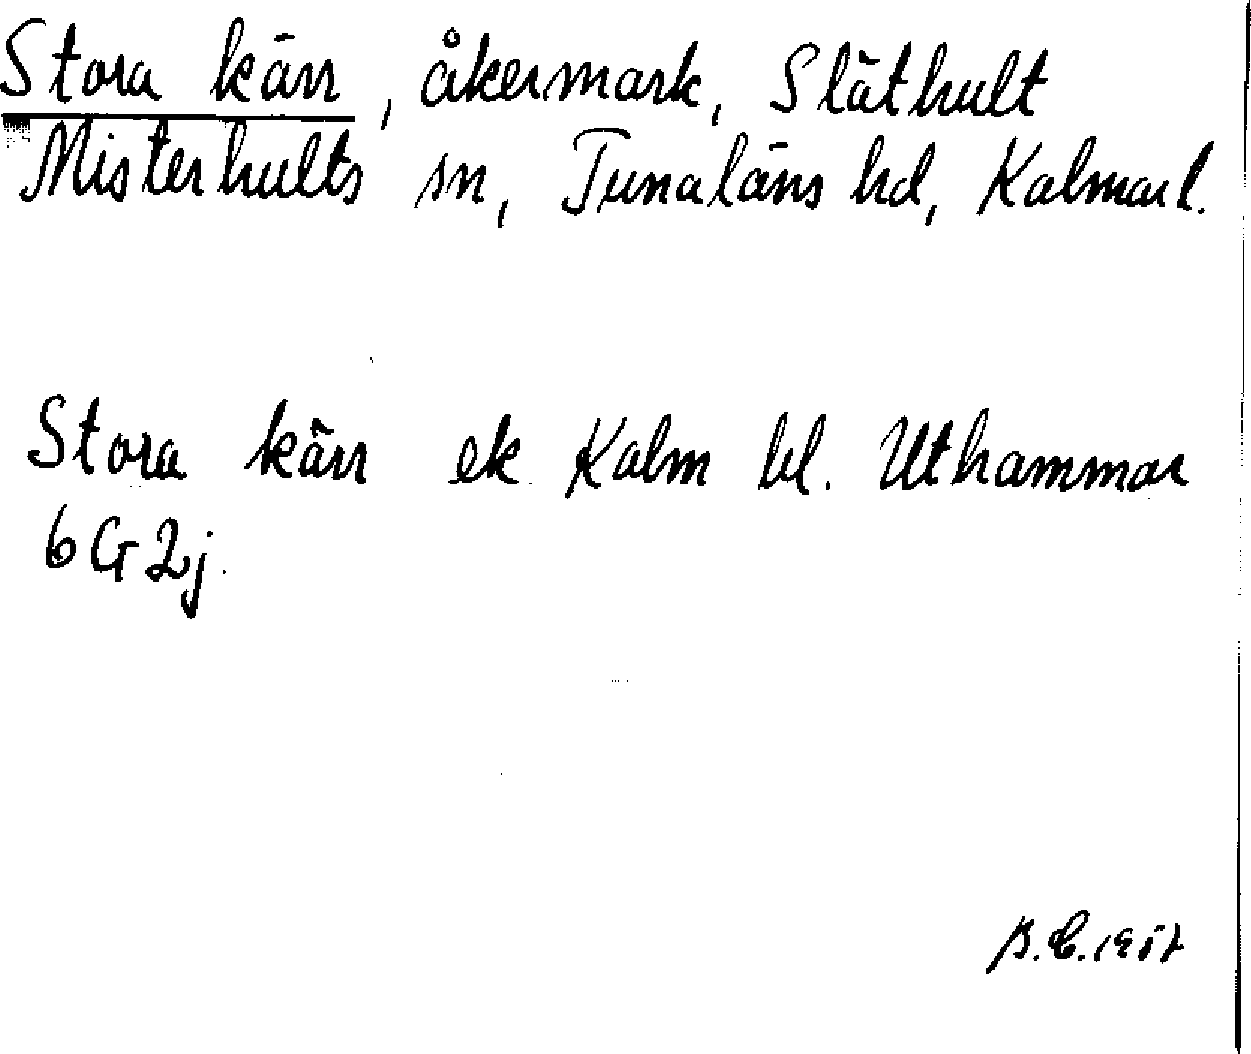 Stora kärr, åkermark, Släthult
Misterhults sn, Tunaläns hd, Kalmar l.
Stora kärr ek Kalm bl. Uthammar
6G2j.